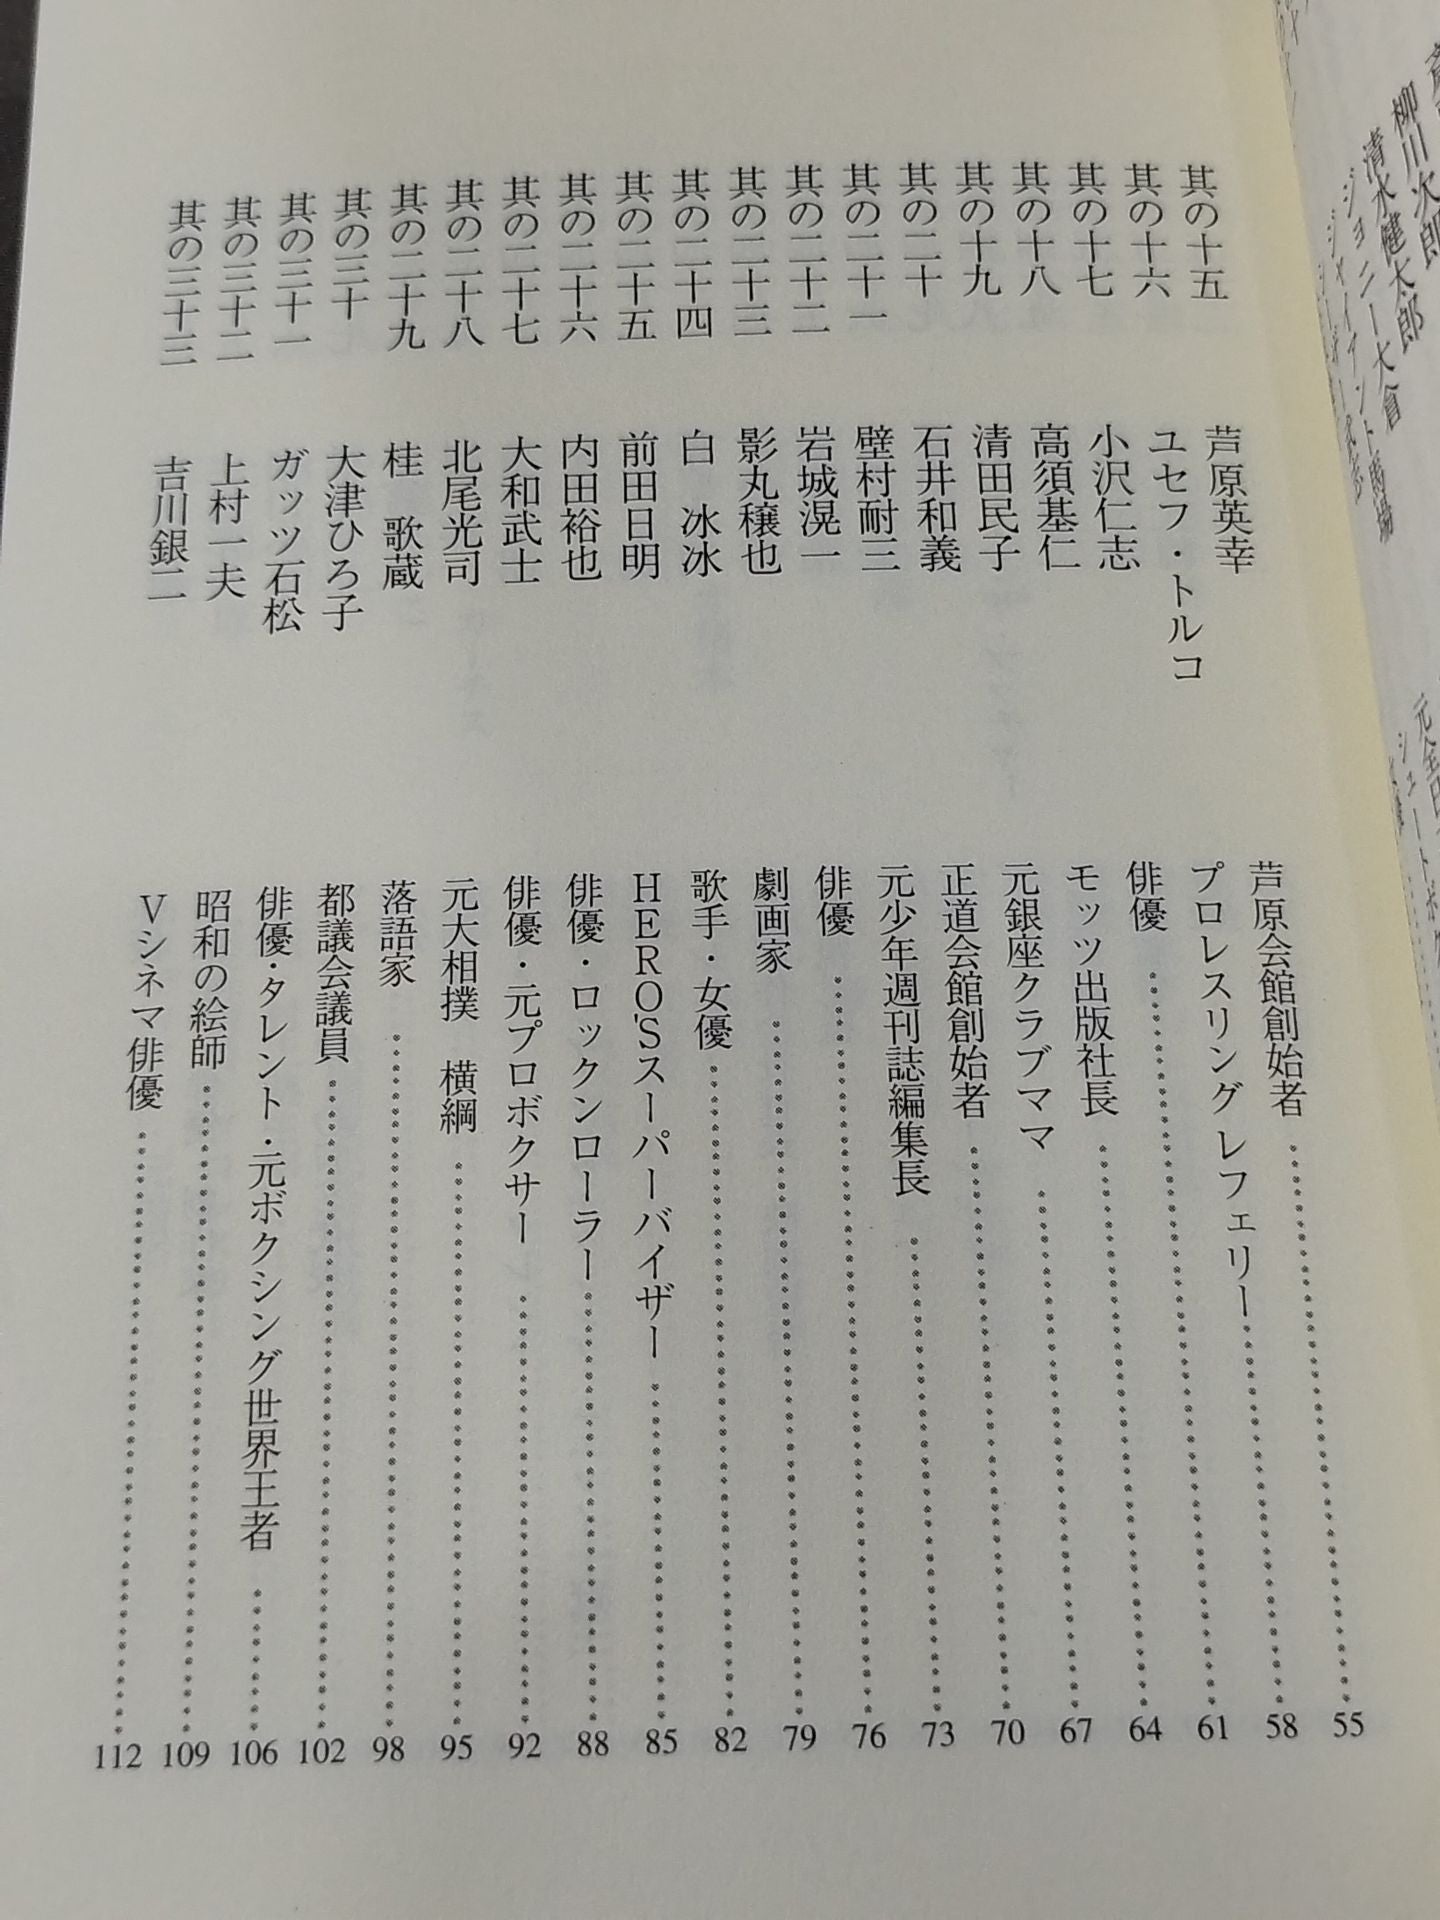 柳川次郎
清水健太郎
ジョニー大倉
ジャイアント馬場
其の十五 芦原英幸 芦原会館創始者 55
其の十六 ユセフ・トルコ プロレスリングレフェリー 58
其の十七 小沢仁志 俳優 61
其の十八 高須基仁 モッツ出版社長 64
其の十九 清田民子 元銀座クラブママ 67
其の二十 石井和義 正道会館創始者 70
其の二十一 壁村耐三 元少年週刊誌編集長 73
其の二十二 岩城滉一 俳優 76
其の二十三 影丸穣也 劇画家 79
其の二十四 白 冰冰 歌手・女優 82
其の二十五 前田日明 HERO'Sスーパーバイザー 85
其の二十六 内田裕也 俳優・ロックンローラー 88
其の二十七 大和武士 俳優・元プロボクサー 92
其の二十八 北尾光司 元大相撲 横綱 95
其の二十九 桂 歌蔵 落語家 98
其の三十 大津ひろ子 都議会議員 102
其の三十一 ガッツ石松 俳優・タレント・元ボクシング世界王者 106
其の三十二 上村一夫 昭和の絵師 109
其の三十三 吉川銀二 Vシネマ俳優 112